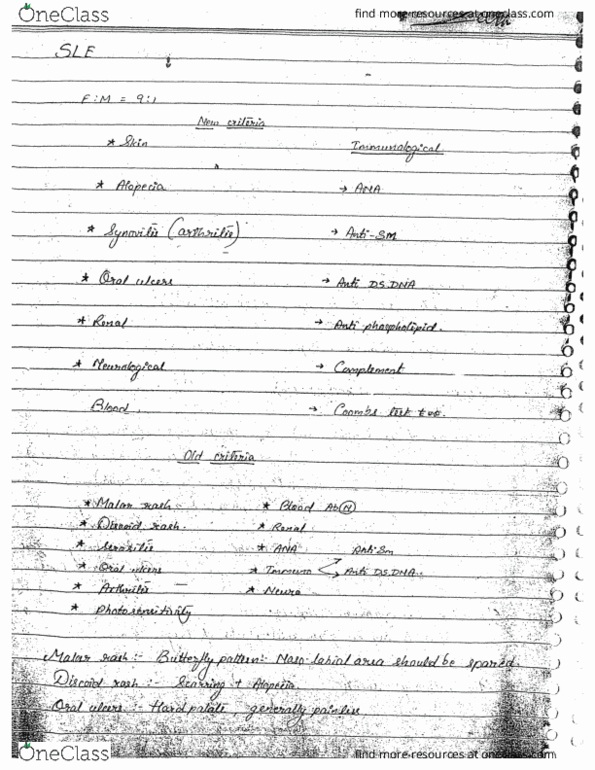 OneClass
find more resources at oneclass.com
SLE
F:M = 9:1
New criteria
* Skin
Immunological
* Alopecia
→ ANA
* Synovitis (arthritis)
→ Anti-SM
* Oral ulcers
→ Anti DS.DNA
* Renal
→ Anti phospholipid.
* Neurological
→ Complement
Blood.
→ Coombs test +ve.
Old criteria
* Malar rash
* Blood Ab(N)
* Discoid rash.
* Renal
* Serositis
* ANA
Anti Sm
* Oral ulcers
* Immuno
Anti DS.DNA.
* Arthritis
* Neuro
* Photosensitivity
Malar rash :- Butterfly pattern:- Naso labial area should be spared.
Discoid rash :- Scarring + Alopecia.
Oral ulcers :- Hard palate, generally painless
OneClass
find more resources at oneclass.com